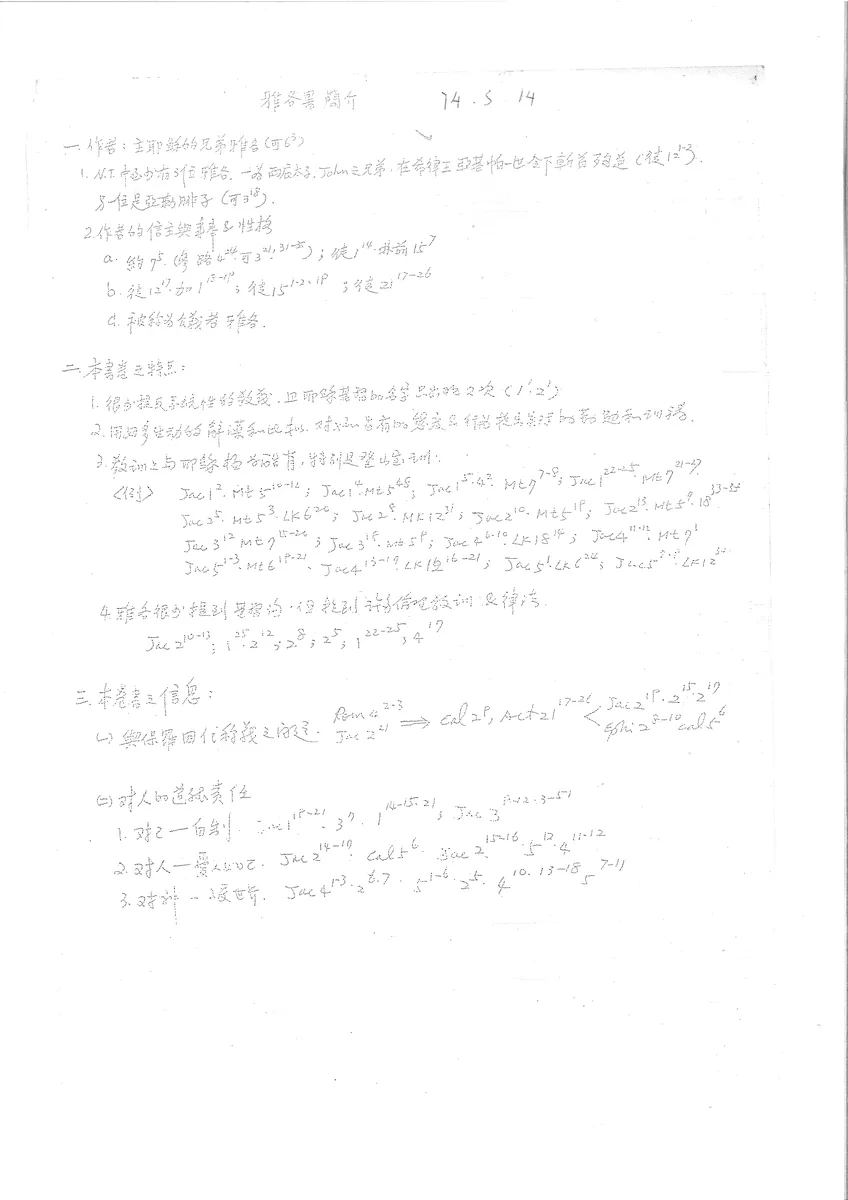 雅各書簡介 74.5.14
一.作者:主耶穌的兄弟雅各(可6³)
1. N.T.中 有3位雅各. 一為西庇太子, John之兄弟. 在希律王亞基帕一世 下 (徒12¹⁻²).
另一位是亞勒腓子(可3¹⁸).
2.作者的信主與 性格
a. 約7⁵.(參路4²⁴.可3²¹,³¹⁻³⁵); 徒1¹⁴.林前15⁷
b. 徒12¹⁷.加1¹⁸⁻¹⁹; 徒15¹⁻².¹⁹; 徒21¹⁷⁻²⁶
c. 被称為公義者雅各.
二.本書卷之特点:
1. 很少提及系統性的教義.且耶穌基督的名字只出現2次(1¹.2¹)
2. 用好多生動的 和比 . 对 的態度及行為提出 的勸勉和 .
3. 教訓上与耶穌 , 特別是登山宝訓.
〈例〉 Jac1².Mt5¹⁰⁻¹²; Jac1⁴.Mt5⁴⁸; Jac1⁵.4².Mt7⁷⁻⁸; Jac1²²⁻²⁵.Mt7²¹⁻²⁷
Jac2⁵.Mt5³.LK6²⁰; Jac2⁸.MK12³¹; Jac2¹⁰.Mt5¹⁹; Jac2¹³.Mt5⁷.18³³⁻³⁵
Jac3¹² Mt7¹⁵⁻²⁰; Jac3¹⁸.Mt5⁹; Jac4⁶⁻¹⁰.LK18¹⁴; Jac4¹¹⁻¹².Mt7¹
Jac5¹⁻³.Mt6¹⁹⁻²¹. Jac4¹³⁻¹⁷.LK12¹⁶⁻²¹; Jac5¹.LK6²⁴; Jac5 .LK12
4.雅各很少提到基督 .但提到許多倫理教訓及律法.
Jac2¹⁰⁻¹³; 1²⁵.2¹²; 2⁸; 2⁵; 1²²⁻²⁵; 4¹⁷
三.本卷書之信息:
(一)與保羅因信称義之 . Rom4²⁻³ Jac2²¹ ⟹ Cal2⁹, Act21¹⁷⁻²⁶ < Jac2¹⁹.2¹⁵.2¹⁷ Ephi2⁸⁻¹⁰ cal5⁶
(二)对人的道德責任
1. 对己一自制. Jac1¹⁹⁻²¹.3⁷.1¹⁴⁻¹⁵.²¹; Jac3
2. 对人一愛人如己. Jac2¹⁴⁻¹⁷. Cal5⁶. Jac2¹⁵⁻¹⁶.5¹².4¹¹⁻¹²
3. 对神一 世界. Jac4¹⁻³.2⁶.⁷. 5¹⁻⁶.2⁵. 4¹⁰.¹³⁻¹⁸ 5⁷⁻¹¹